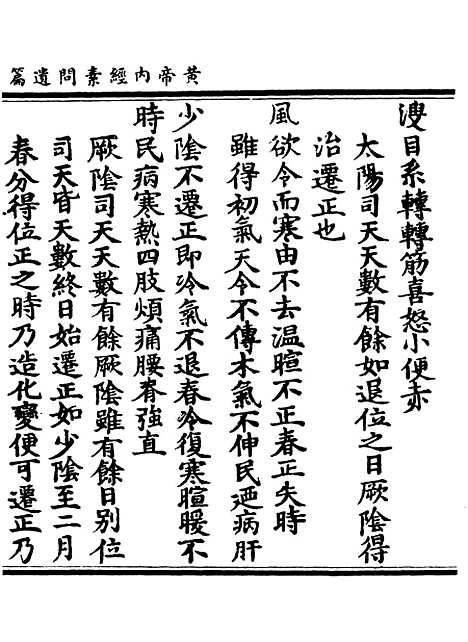 黃帝內經素問遺篇
溲目系轉轉筋喜怒小便赤
太陽司天天數有餘如退位之日厥陰得
治遷正也
風欲令而寒由不去温暄不正春正失時
雖得初氣天令不傳木氣不伸民迺病肝
少陰不遷正即冷氣不退春冷復寒暄暖不
時民病寒熱四肢煩痛腰脊強直
厥陰司天天數有餘厥陰雖有餘日别位
司天皆天數終日始遷正如少陰至二月
春分得位正之時乃造化變便可遷正乃